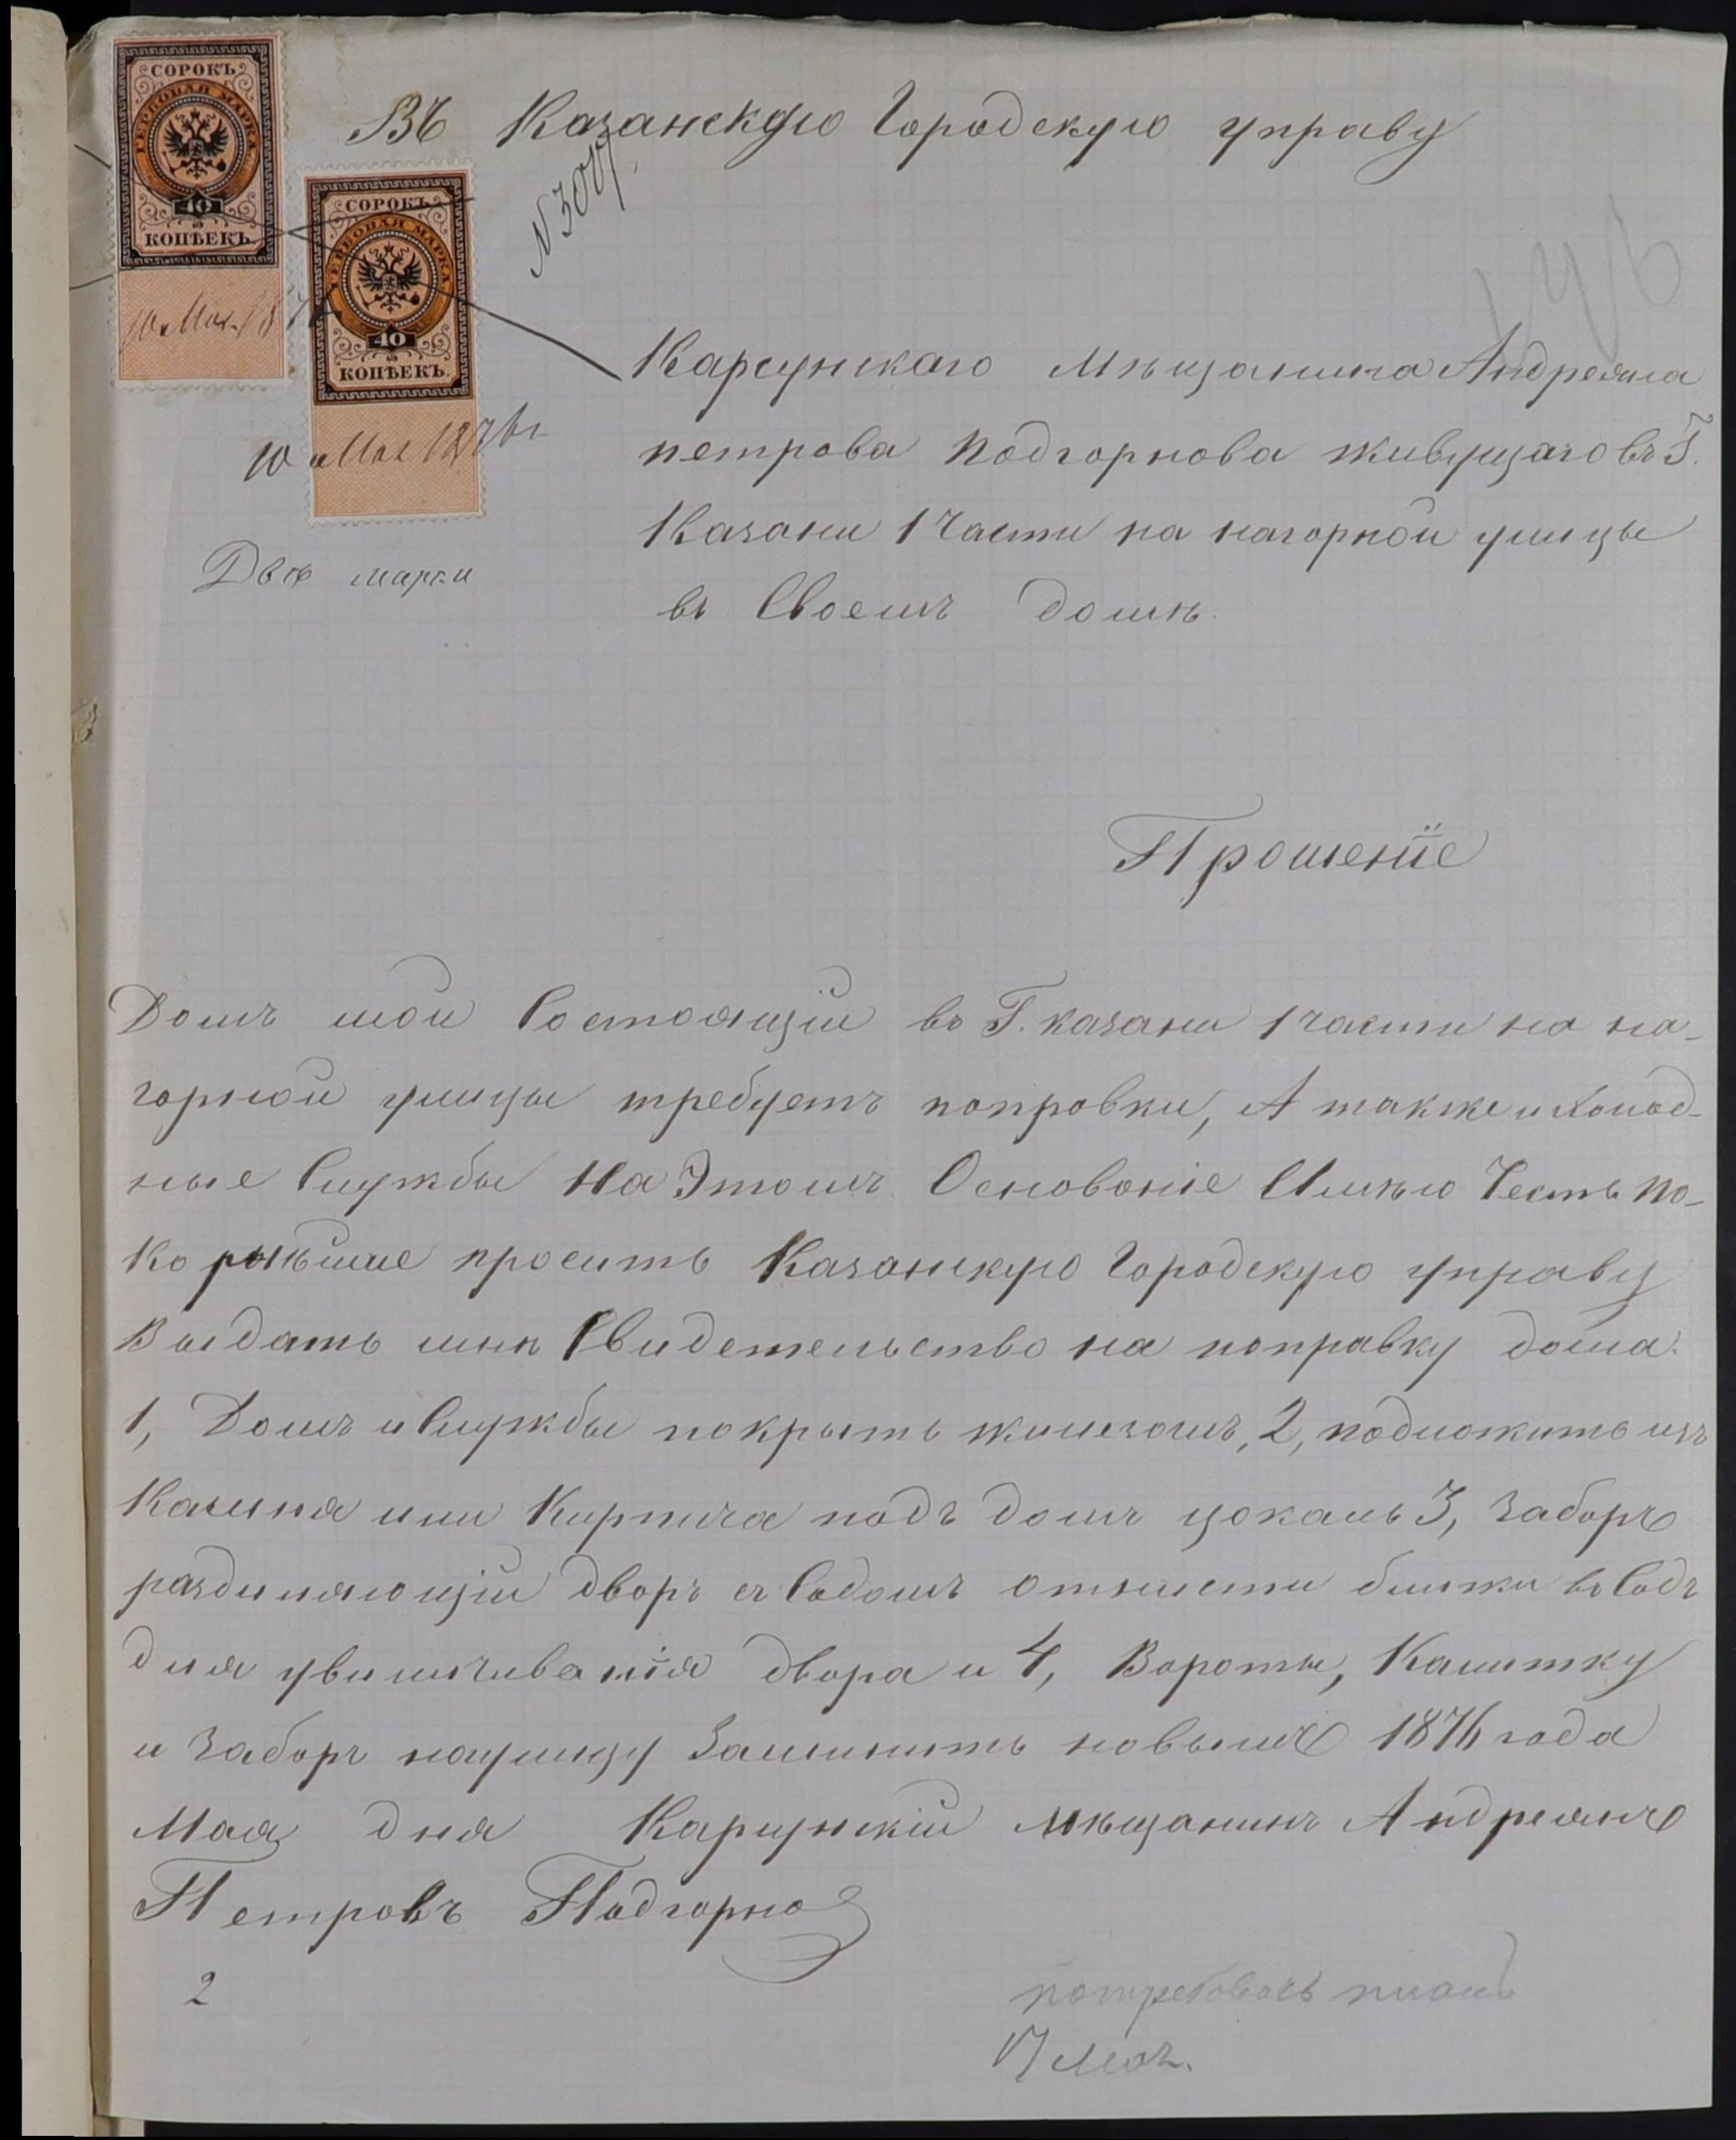 СОРОКЪ
ГЕРБОВАЯ МАРКА
40
КОПѢЕКЪ.
10 Мая 187
СОРОКЪ
ГЕРБОВАЯ МАРКА
40
КОПѢЕКЪ.
10 Мая 1876 г
Двѣ марки
Въ Казанскую Городскую управу
Карсунскаго мѣщанина Андреяна
петрова Подгорнова живущаго въ Г.
Казани 1 Части на нагорной улицы
въ Своемъ домѣ.
Прошенїе
Домъ мой Состоящiй въ Г. казани 1 части на на-
горной улицы требуетъ поправки, А также и Холод-
ные Службы На Этомъ Основанiе Имѣю Честь По-
корнѣише просить Казанскую Городскую управу
Выдать мнѣ Свидетельство на поправку дома.
1, Домъ и Службы покрыть жилезомъ, 2, подложить изъ
Камня или Кирпича подъ домъ цокаль 3, Заборъ
раздиляющiй дворъ съ Садомъ отнисти ближи въ Садъ
для увиличиванiя двора и 4, Вороты, Калитку
и Заборъ наулицу Заминить новымъ 1876 года
Мая дня Карсунскiй мѣщанинъ Андреянъ
Петровъ Подгорно
2
потребовать планъ
17 Мая.